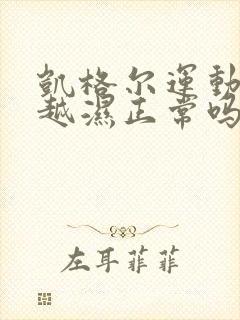 凱格尔運動
越濕正常吗
左耳菲菲